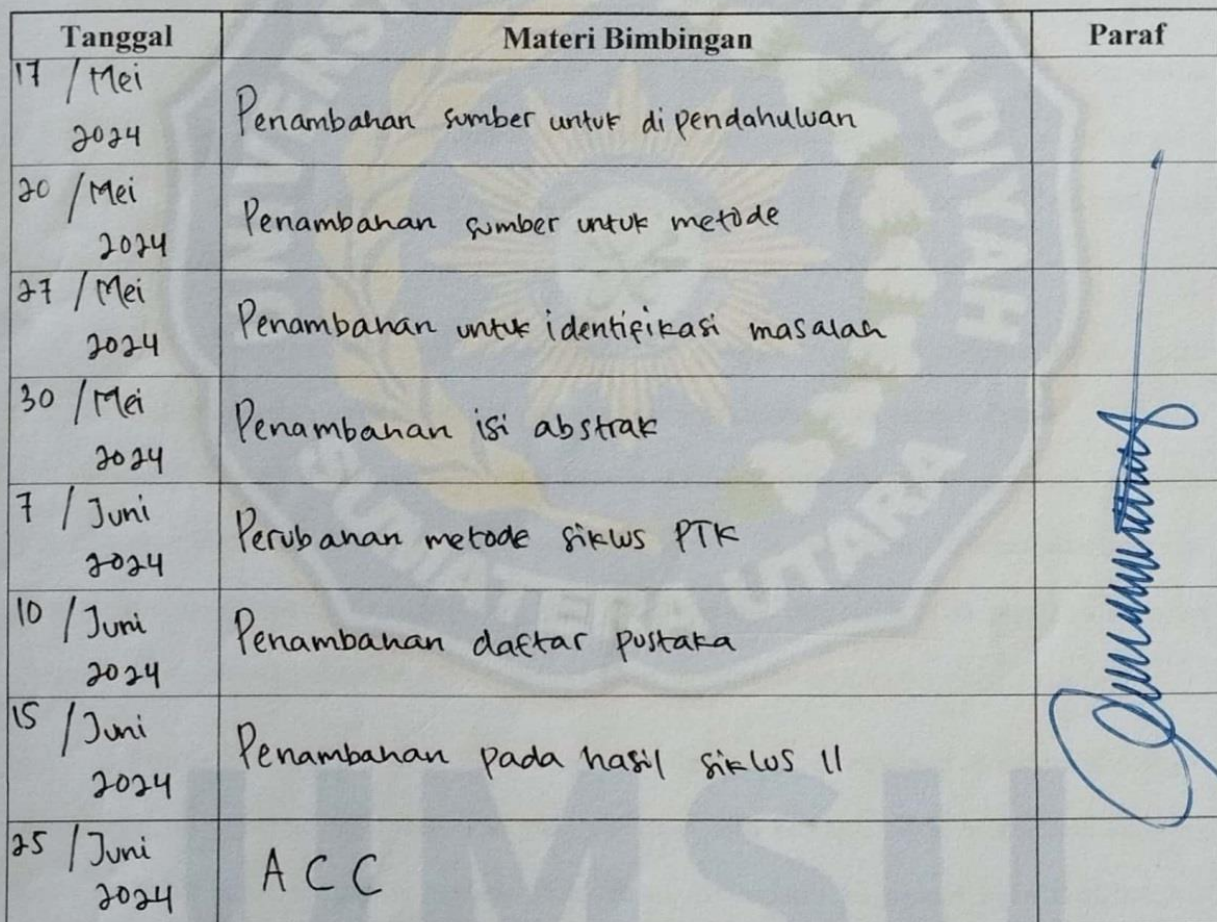 Tanggal Materi Bimbingan Paraf
17 / Mei 2024 Penambahan sumber untuk di pendahuluan
20 / Mei 2024 Penambahan sumber untuk metode
27 / Mei 2024 Penambahan untuk identifikasi masalah
30 / Mei 2024 Penambahan isi abstrak
7 / Juni 2024 Perubahan metode siklus PTK
10 / Juni 2024 Penambahan daftar pustaka
15 / Juni 2024 Penambahan pada hasil siklus II
25 / Juni 2024 ACC
SUMATERA UTARA
UMSU